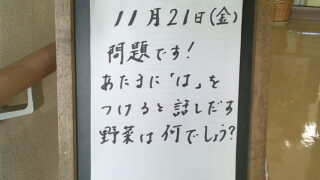 11月21日(金)
問題です!
あたまに「は」を
つけると話しだす
野菜は何でしょう?